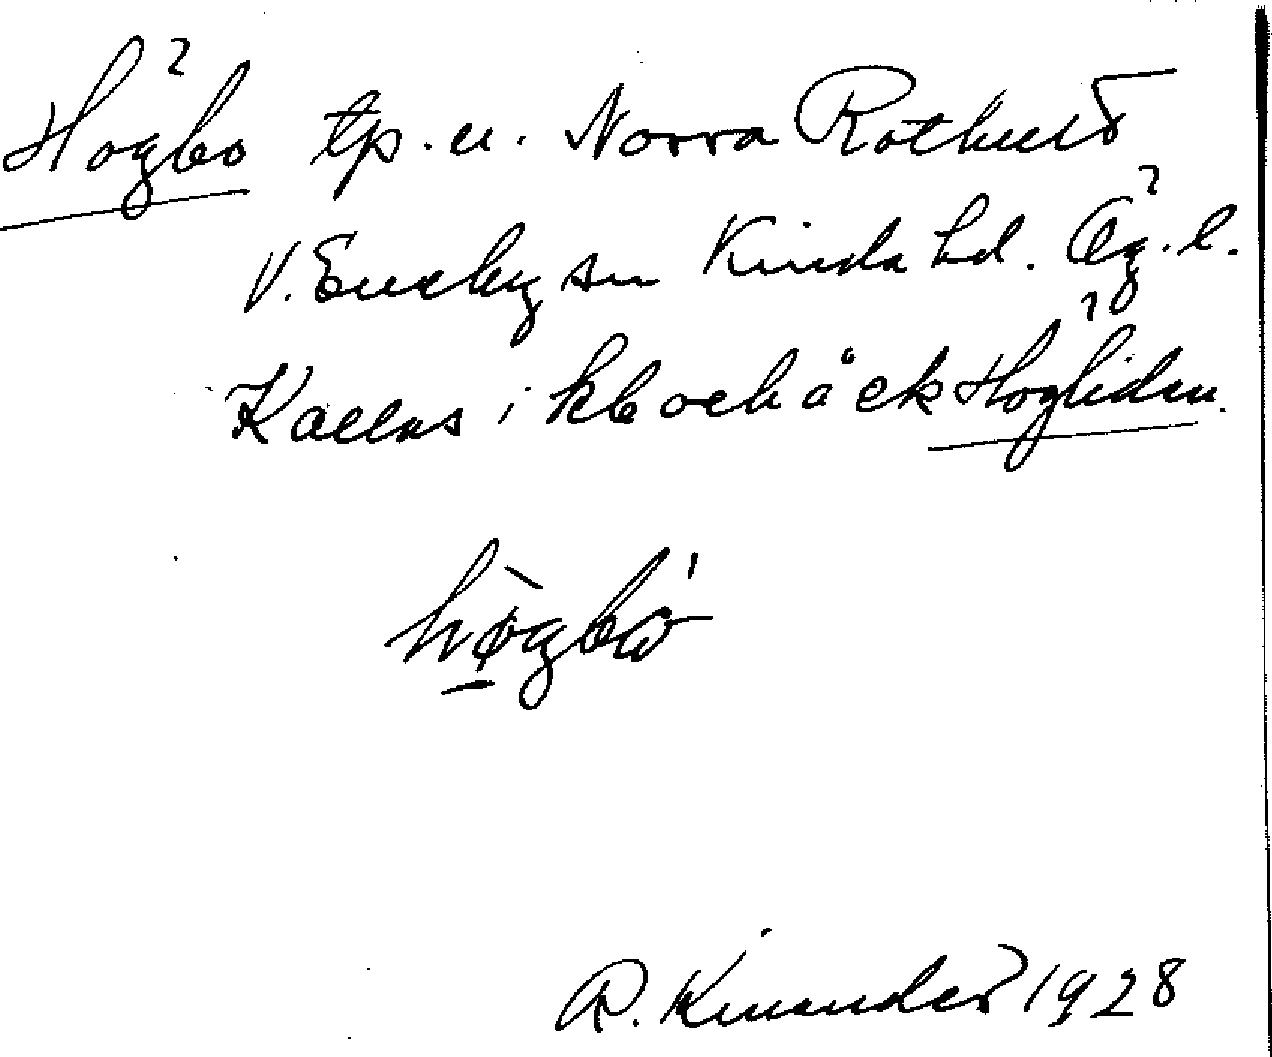 Högbo tp. u. Norra Rothult
V. Eneby sn Kinda hd. Ög. l.
Kallas i kb och å ek Högliden.
högbo
R. Kinander 1928